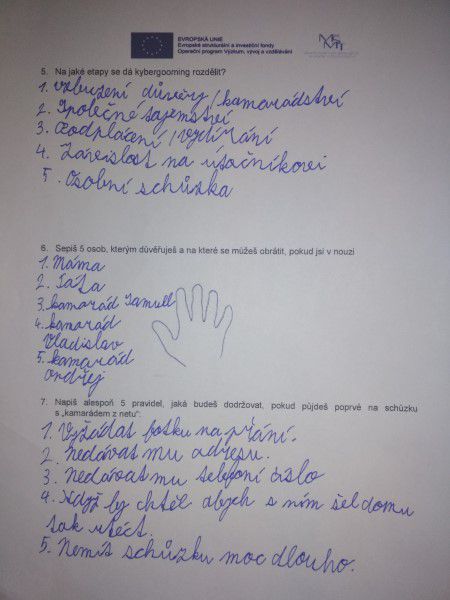 EVROPSKÁ UNIE
Evropské strukturální a investiční fondy
Operační program Výzkum, vývoj a vzdělávání
5. Na jaké etapy se dá kybergooming rozdělit?
1. vzbuzení důvěry/kamarádství
2. Společné tajemství
3. Podplácení/vydírání
4. Závislost na útočníkovi
5. Osobní schůzka
6. Sepiš 5 osob, kterým důvěřuješ a na které se můžeš obrátit, pokud jsi v nouzi
1. Máma
2. Táta
3. kamarád Samuel
4. kamarád
Vladislav
5. kamarád
Ondřej
7. Napiš alespoň 5 pravidel, jaká budeš dodržovat, pokud půjdeš poprvé na schůzku
s „kamarádem z netu":
1. Vyžádat fotku na přání.
2. Nedávat mu adresu.
3. Nedávat mu telefoní číslo
4. Když by chtěl abych s ním šel domu
tak utéct.
5. Nemít schůzku moc dlouho.